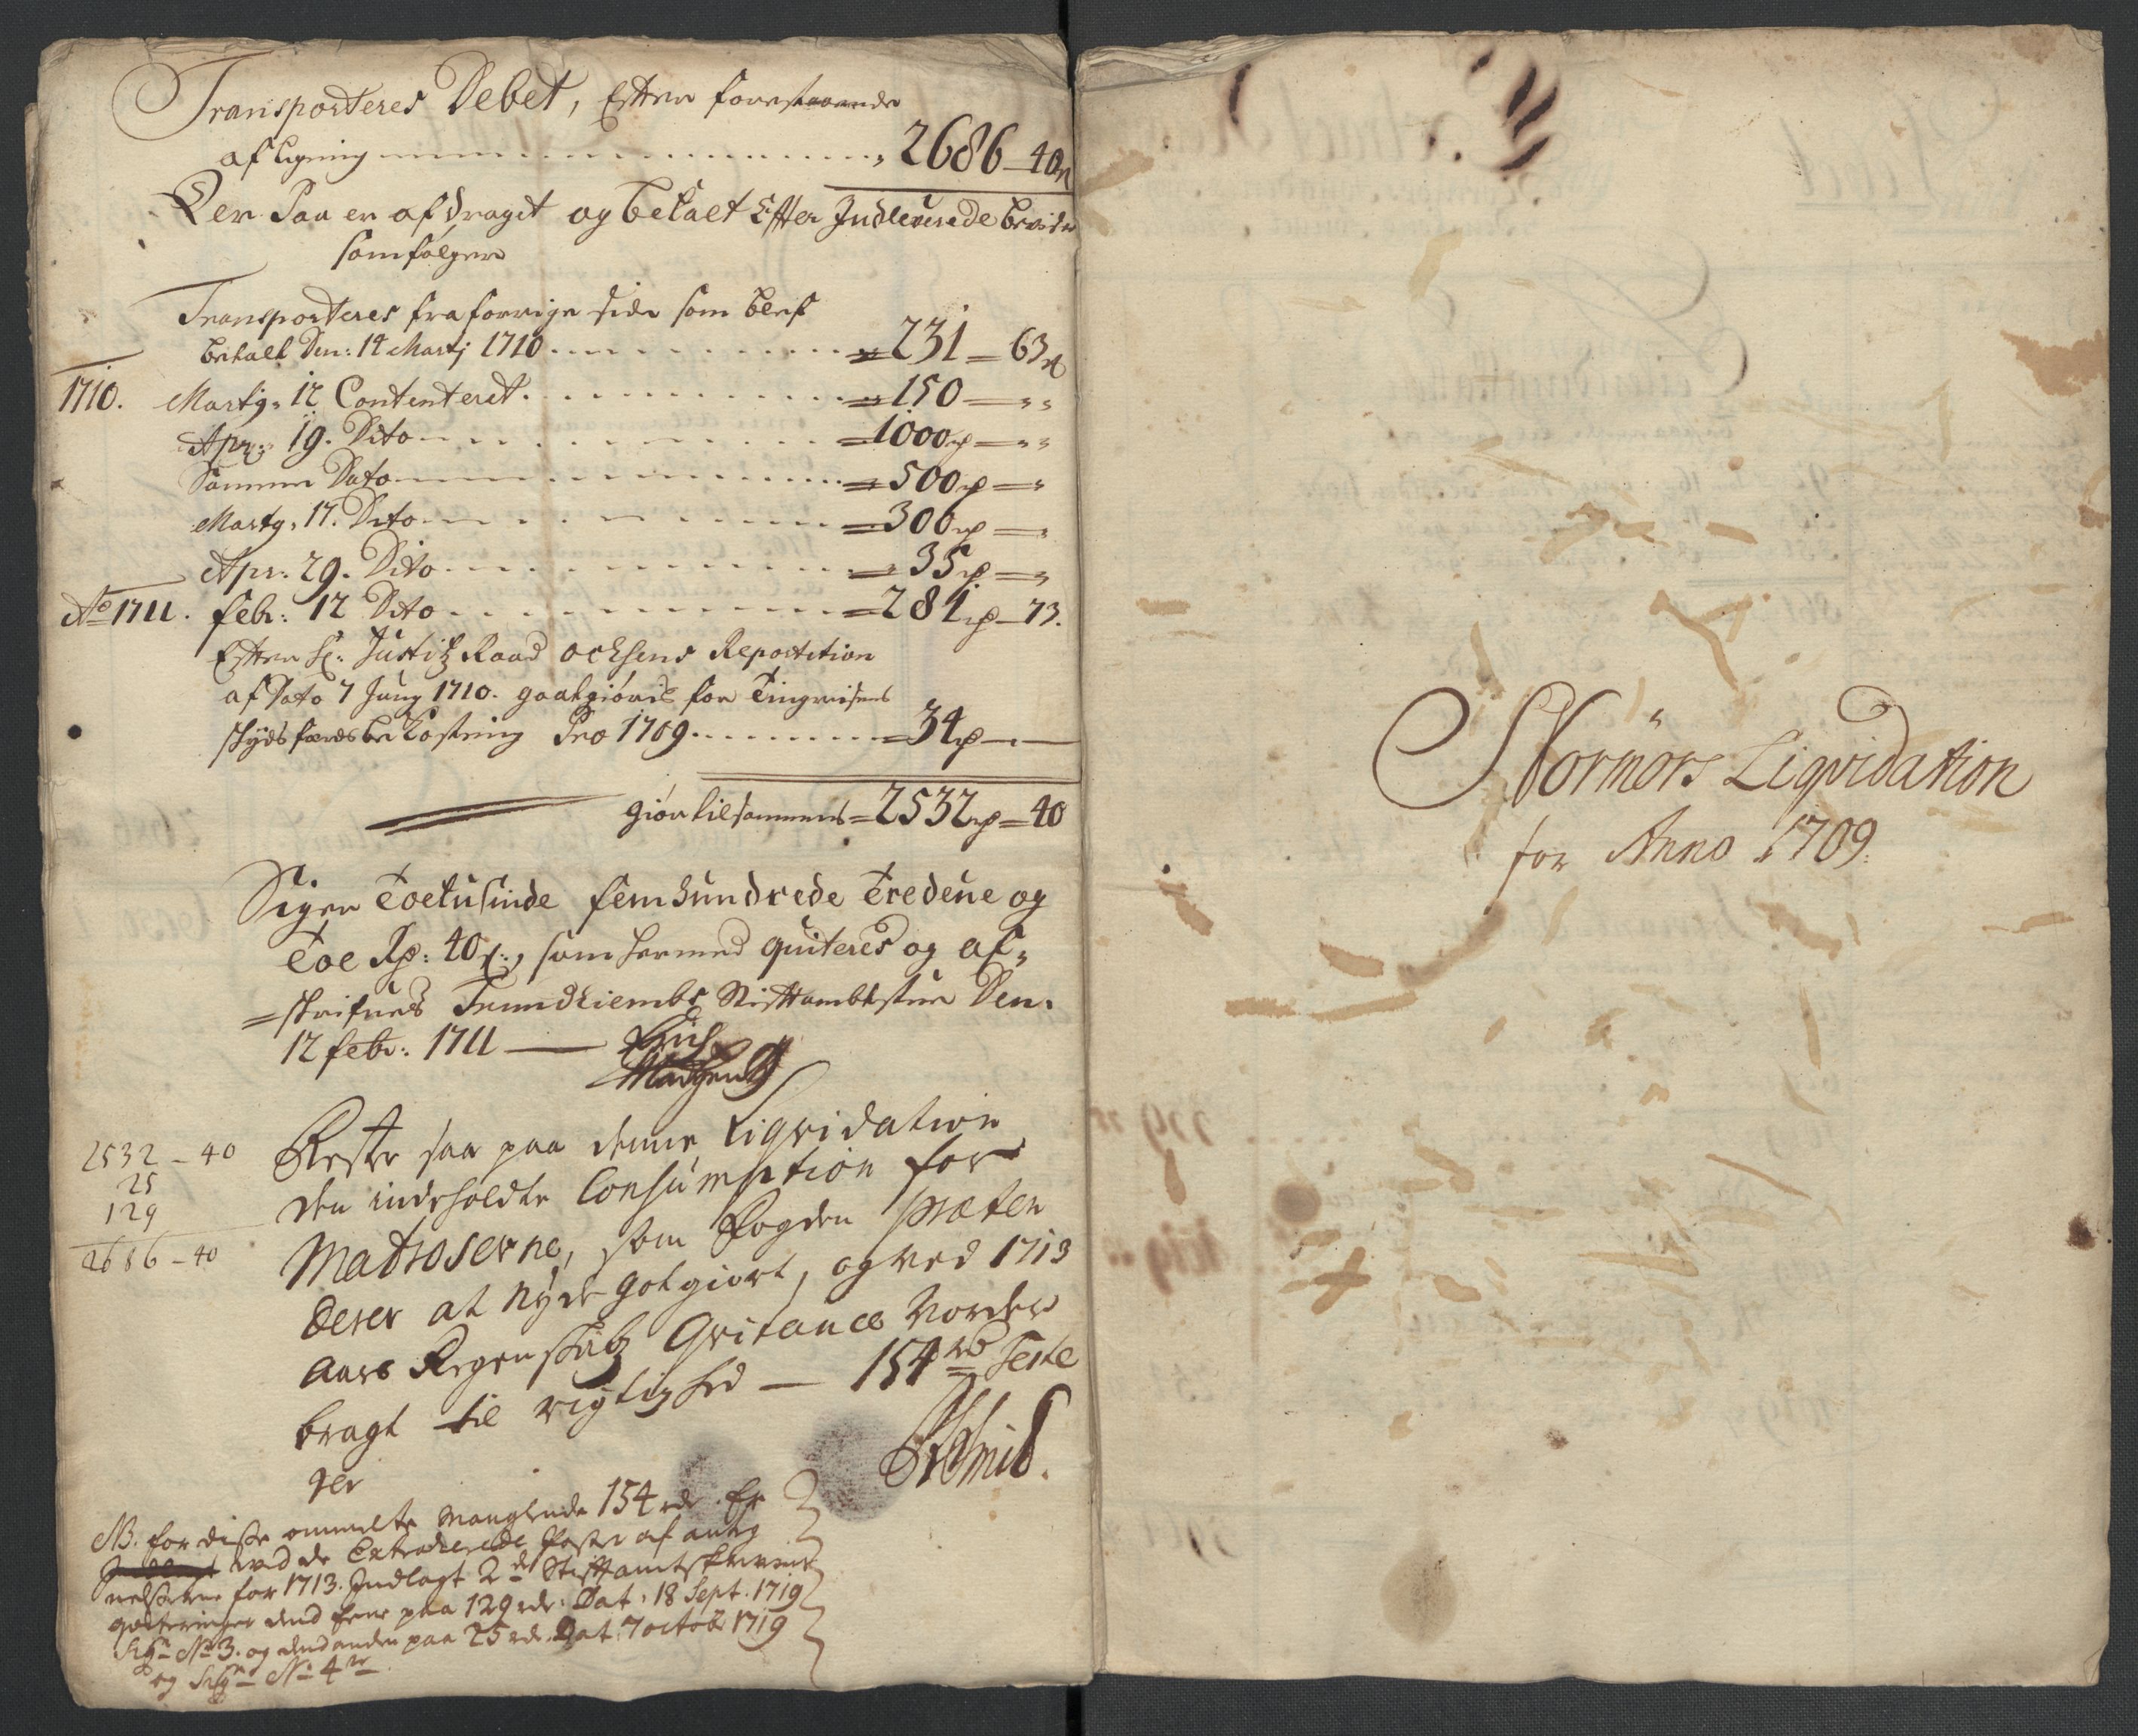 Transporteres Debet, Efter forestaaende
afligning 2686 – 40
Der Paa er afdraget og betalt Efter Indleverede beviser
som følger
Transporteres fra forrige side som blef
betalt Den: 14 Martj 1710 231 – 63
1710. Martij 12 Contenteret 150
Apr: 19. Dito 1000
Samme Dato 500
Martij 17. Dito 300
Apr: 29. Dito 35
Ao 1711. febr: 12 Dito 281 – 73.
Efter Hr: Justitz Raad Ochsens Repartition
af Dato 7 Junj 1710. godtgiøris for Tingreisens
skydsferds bekostning Pro 1709 34
giør tilsammens 2532 – 40
Siger Toetusinde femhundrede Tredeve og
Toe Rd: 40 s:, som hermed quiteres og af-
skrifves Trundhiembs Stiftambtstue Den.
12 febr: 1711
Rester saa paa denne Liqvidation
den indeholdte Consumption for
Matroserne, som Fogden præten
derer at nyde gotgiort, og ved 1713
Aars Regenskabs Qvitance vorder
bragt til rigtighed — 154 rd Teste
2532 – 40
25
129
2686 – 40
NB. for disse ommelte manglende 154 rdr er
ved de Extraherede Poster af anteg
nelserne for 1713. Indlagt 2de Stiftamtskriverens
qviteringer dend Eene paa 129 rdr: Dat: 18 Sept. 1719
No 3. og dend anden paa 25 rdr. Dat: 7 octob: 1719
og No 4
Normørs Liqvidation
for Anno 1709.